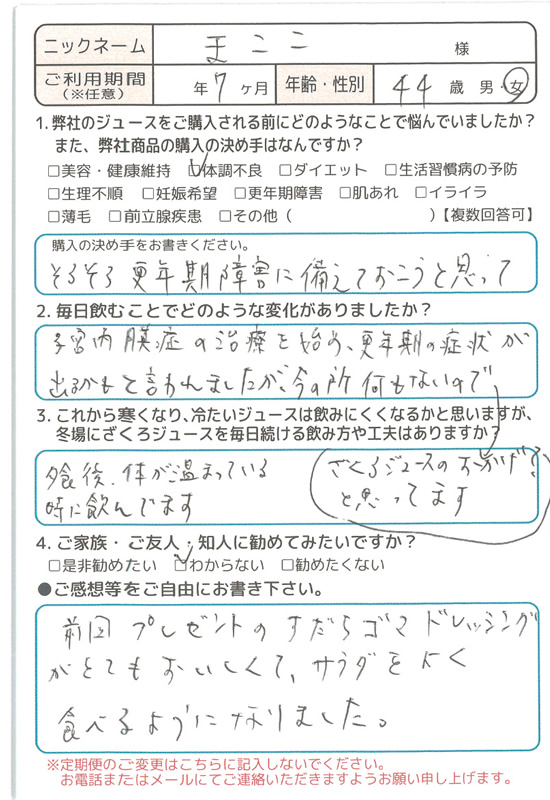 ニックネーム まここ 様
ご利用期間(※任意) 年 7 ヶ月 年齢・性別 44 歳 男・女
1.弊社のジュースをご購入される前にどのようなことで悩んでいましたか?
また、弊社商品の購入の決め手はなんですか?
□美容・健康維持 ☑体調不良 □ダイエット □生活習慣病の予防
□生理不順 □妊娠希望 □更年期障害 □肌あれ □イライラ
□薄毛 □前立腺疾患 □その他( )【複数回答可】
購入の決め手をお書きください。
そろそろ更年期障害に備えておこうと思って
2.毎日飲むことでどのような変化がありましたか?
子宮内膜症の治療を始め、更年期の症状が
出るかもと言われましたが、今の所何もないので
3.これから寒くなり、冷たいジュースは飲みにくくなるかと思いますが、
冬場にざくろジュースを毎日続ける飲み方や工夫はありますか?
夕食後、体が温まっている
時に飲んでます
ざくろジュースのおかげ?
と思ってます
4.ご家族・ご友人・知人に勧めてみたいですか?
□是非勧めたい ☑わからない □勧めたくない
●ご感想等をご自由にお書き下さい。
前回プレゼントのすだちゴマドレッシング
がとてもおいしくて、サラダをよく
食べるようになりました。
※定期便のご変更はこちらに記入しないでください。
お電話またはメールにてご連絡いただきますようお願い申し上げます。